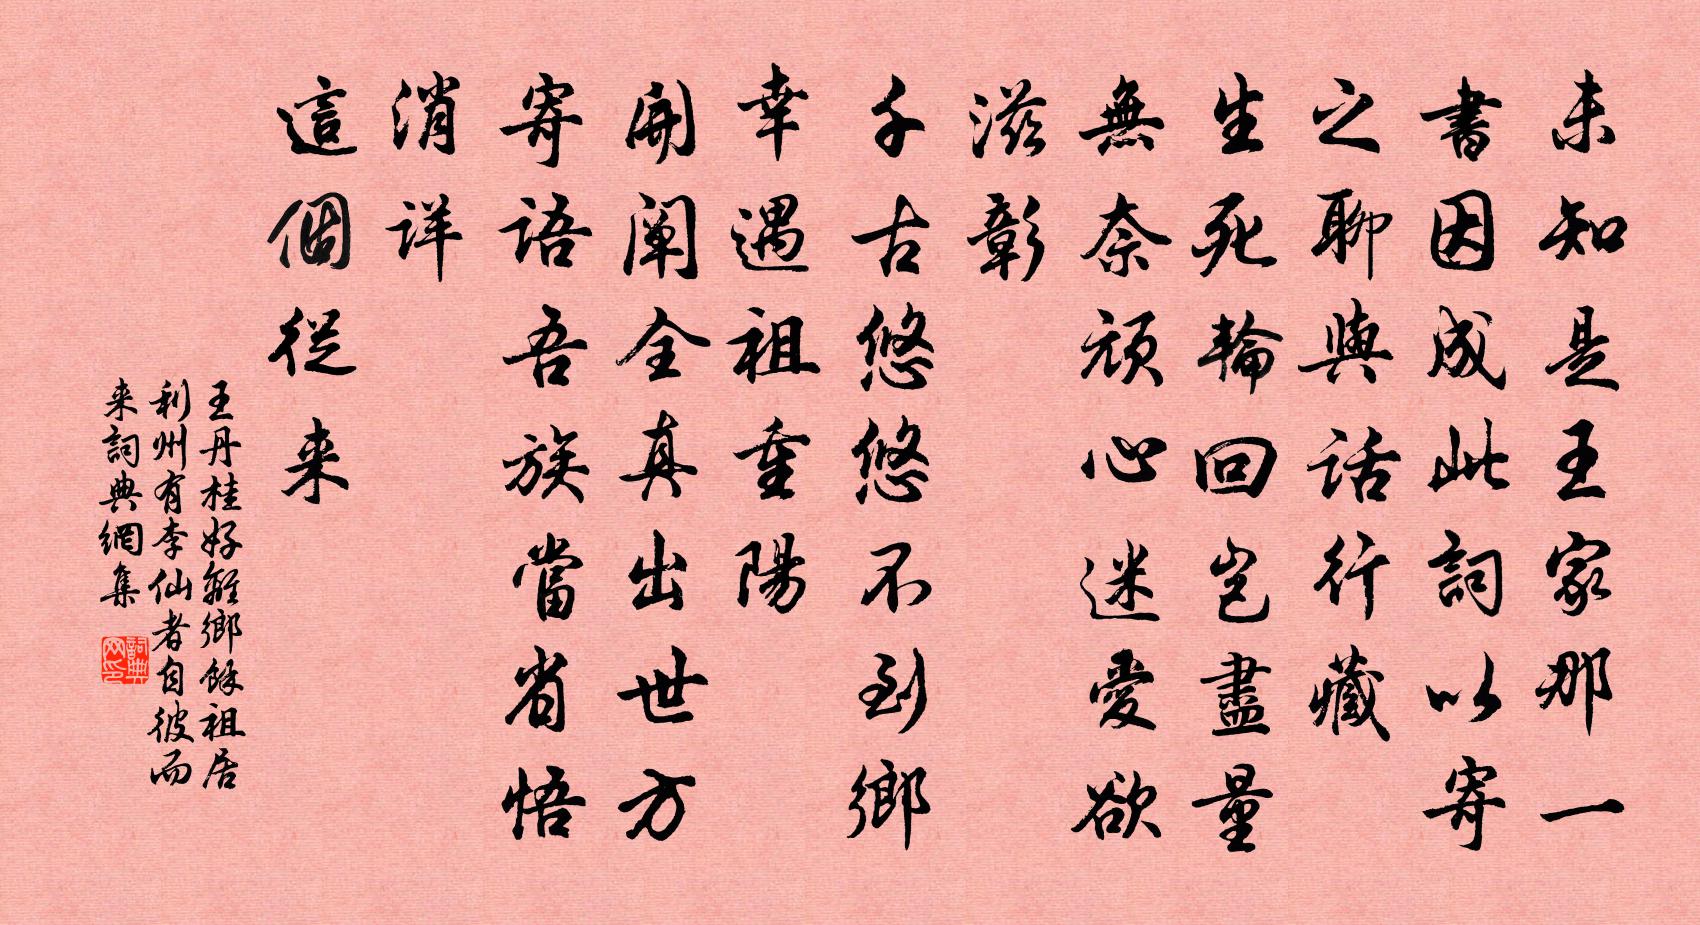 未知是王家那一
書因成此詞以寄
之聊與話行藏
生死輪回豈盡量
無奈頑心迷愛欲
滋彰
千古悠悠不到鄉
幸遇祖重陽
開闡全真出世方
寄語吾族當省悟
消详
這個從来
王丹桂好離鄉餘祖居
利州有李仙者自彼而
来詞典網集
詞典
网印